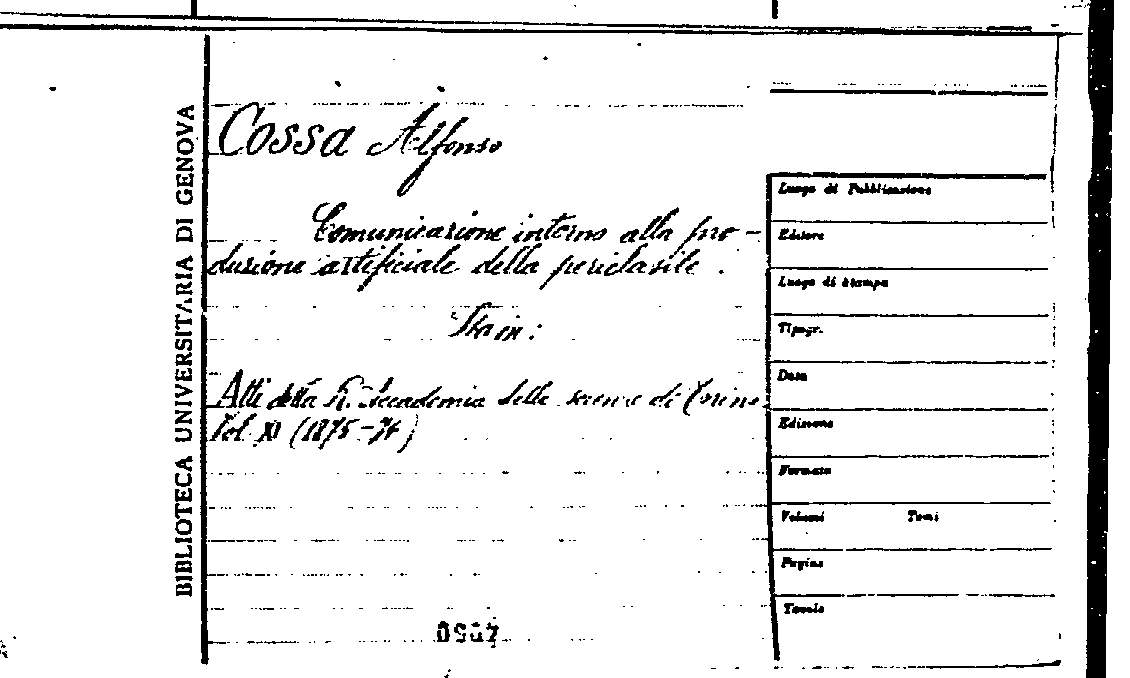 BIBLIOTECA UNIVERSITARIA DI GENOVA
Cossa Alfonso
Comunicazione intorno alla pro-
duzione artificiale della periclasite.
Sta in:
Atti della R. Accademia delle scienze di Torino
Vol. XI (1875-76)
Luogo di Pubblicazione
Editore
Luogo di stampa
Tipogr.
Data
Edizione
Formato
Volumi Tomi
Pagine
Tavole